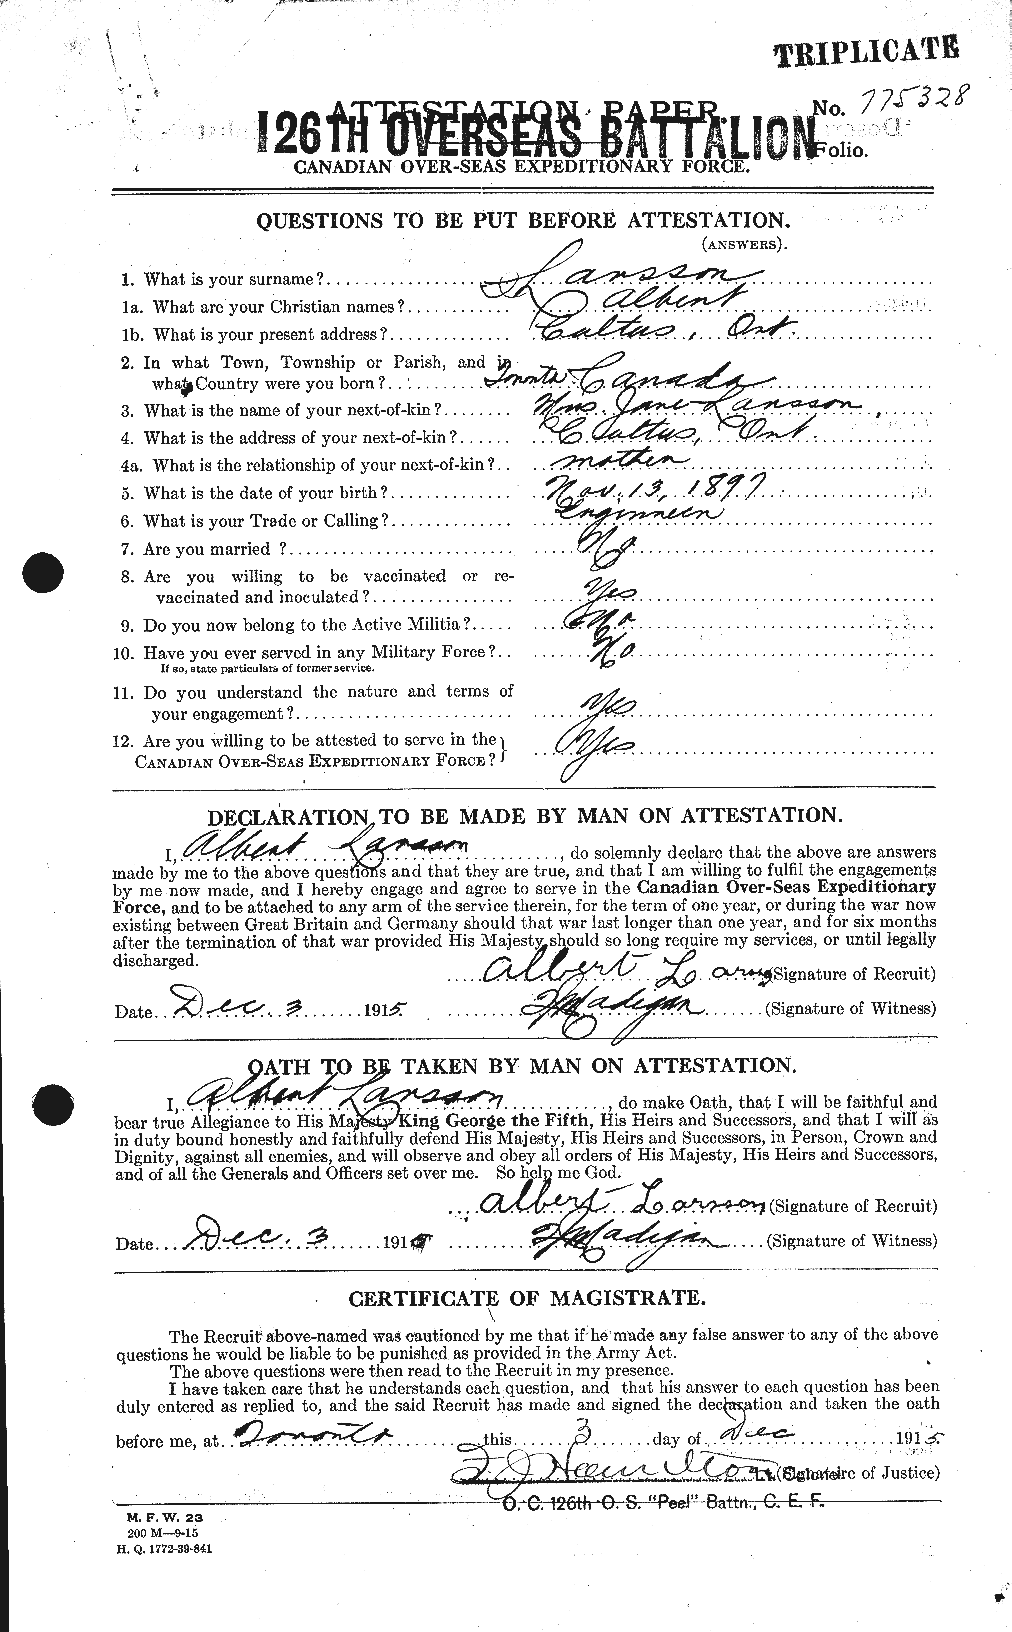 TRIPLICATE
ATTESTATION PAPER.
No. 775328
126TH OVERSEAS BATTALION
Folio.
CANADIAN OVER-SEAS EXPEDITIONARY FORCE.
QUESTIONS TO BE PUT BEFORE ATTESTATION.
(ANSWERS).
1. What is your surname? Larsson
1a. What are your Christian names? Albert
1b. What is your present address? Cultus, Ont.
2. In what Town, Township or Parish, and in
what Country were you born? Toronto Canada
3. What is the name of your next-of-kin? Mrs. Jane Larsson,
4. What is the address of your next-of-kin? Cultus, Ont.
4a. What is the relationship of your next-of-kin? mother
5. What is the date of your birth? Nov. 13, 1897
6. What is your Trade or Calling? Enginneer
7. Are you married ? No
8. Are you willing to be vaccinated or re-
vaccinated and inoculated? Yes
9. Do you now belong to the Active Militia? No
10. Have you ever served in any Military Force? No
If so, state particulars of former service.
11. Do you understand the nature and terms of
your engagement? Yes
12. Are you willing to be attested to serve in the
CANADIAN OVER-SEAS EXPEDITIONARY FORCE? Yes
DECLARATION TO BE MADE BY MAN ON ATTESTATION.
I, Albert Larsson, do solemnly declare that the above are answers
made by me to the above questions and that they are true, and that I am willing to fulfil the engagements
by me now made, and I hereby engage and agree to serve in the Canadian Over-Seas Expeditionary
Force, and to be attached to any arm of the service therein, for the term of one year, or during the war now
existing between Great Britain and Germany should that war last longer than one year, and for six months
after the termination of that war provided His Majesty should so long require my services, or until legally
discharged.
Albert Larson (Signature of Recruit)
Date Dec. 3 1915 Madigan (Signature of Witness)
OATH TO BE TAKEN BY MAN ON ATTESTATION.
I, Albert Larsson, do make Oath, that I will be faithful and
bear true Allegiance to His Majesty King George the Fifth, His Heirs and Successors, and that I will as
in duty bound honestly and faithfully defend His Majesty, His Heirs and Successors, in Person, Crown and
Dignity, against all enemies, and will observe and obey all orders of His Majesty, His Heirs and Successors,
and of all the Generals and Officers set over me. So help me God.
Albert Larson (Signature of Recruit)
Date Dec. 3 1915 Madigan (Signature of Witness)
CERTIFICATE OF MAGISTRATE.
The Recruit above-named was cautioned by me that if he made any false answer to any of the above
questions he would be liable to be punished as provided in the Army Act.
The above questions were then read to the Recruit in my presence.
I have taken care that he understands each question, and that his answer to each question has been
duly entered as replied to, and the said Recruit has made and signed the declaration and taken the oath
before me, at Toronto this 3 day of Dec 1915
F J Hamilton Lt. Colonel (Signature of Justice)
O. C. 126th O. S. "Peel" Battn., C. E. F.
M. F. W. 23
200 M—9-15
H. Q. 1772-39-841